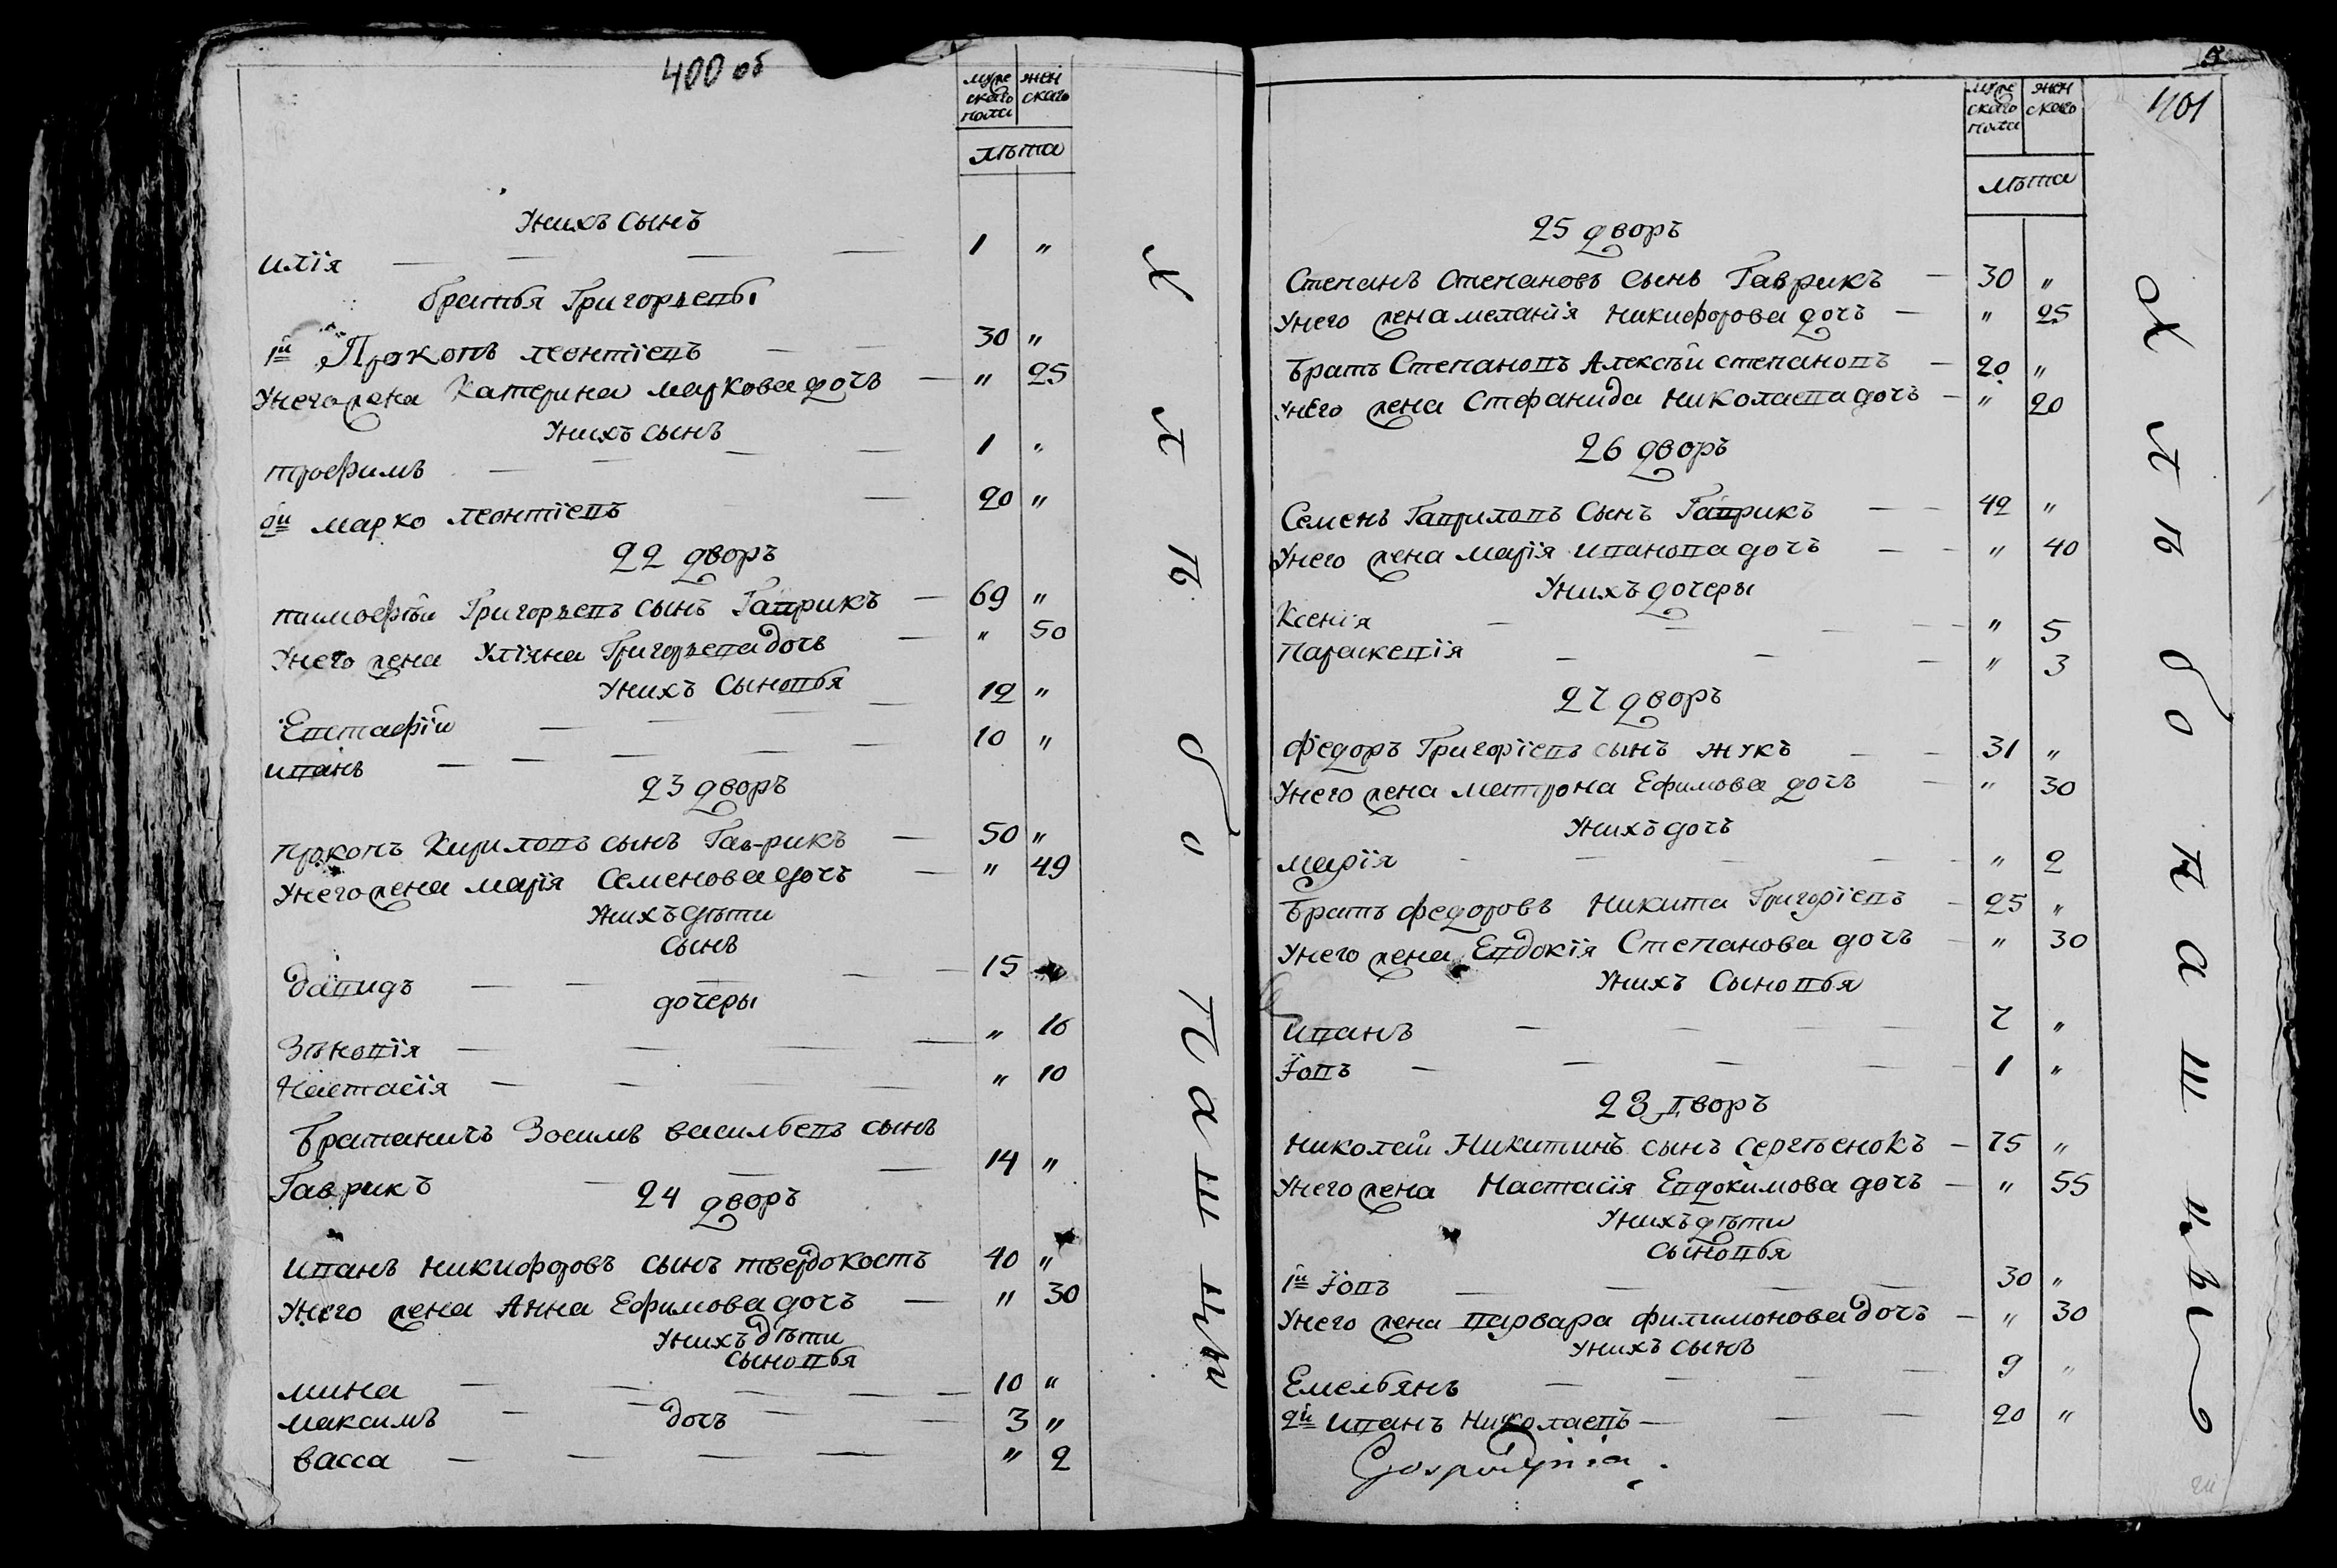 400 об
муже
ского
пола
жен
ского
лѣта
Унихъ сынъ
илїя — — — — 1 "
братья Григорьевы
1й Прокопъ леонтїевъ — — 30 "
Унего жена Катерина маркова дочь — " 25
Унихъ сынъ
трофимъ — — — — 1 "
2й марко леонтїевъ — 20 "
22 дворъ
тимофѣй Григорьевъ сынъ Гаврикъ — 69 "
Унего жена Улїяна Григорьева дочь — " 50
Унихъ Сыновья
Евстафїй — — — — 12 "
иванъ — — — — — 10 "
23 дворъ
прокопъ Кириловъ сынъ Гав-рикъ — 50 "
Унего жена марїя Семенова дочь — " 49
Унихъ дѣти
сынъ
давидъ — — — — — 15
дочеры
Зѣновїя — — — — " 16
Настасїя — — — " 10
Братаничъ Зосимъ васильевъ сынъ
Гаврикъ — — — 14 "
24 дворъ
иванъ никифоровъ сынъ твердокостъ 40 "
Унего жена Анна Ефимова дочь — " 30
Унихъ дѣти
сыновья
мина — — — — — 10 "
максимъ — — — — 3 "
дочь
васса — — — — " 2
Х л ѣ б о п а ш ц ы
5
401
муже
ского
пола
жен
ского
лѣта
25 дворъ
Степанъ Степановъ сынъ Гаврикъ — 30 "
Унего жена меланїя никифорова дочь — " 25
Братъ Степановъ Алексѣй степановъ — 20 "
Унего жена Стефанида николаева дочь — " 20
26 дворъ
Семенъ Гавриловъ Сынъ Гаврикъ — — 42 "
Унего жена марїя иванова дочь — — " 40
Унихъ дочеры
Ксенїя — — — — — " 5
Параскевїя — — — " 3
27 дворъ
Федоръ Григорїевъ сынъ жукъ — — 31 "
Унего жена матрона Ефимова дочь — " 30
Унихъ дочь
марїя — — — — — " 2
Братъ федоровъ никита Григорїевъ — 25 "
Унего жена Евдокїя Степанова дочь — " 30
Унихъ Сыновья
иванъ — — — 7 "
Їовъ — — — — — 1 "
28 дворъ
николай Никитинъ сынъ сергѣенокъ — 75 "
Унего жена Настасїя Евдокимова дочь — " 55
Унихъ дѣти
сыновья
1й Їовъ — — — — 30 "
Унего жена варвара филимонова дочь — " 30
Унихъ сынъ
Емельянъ — — — — 9 "
2й иванъ николаевъ — — — 20 "
Gospodynia.
Х л ѣ б о п а ш ц ы